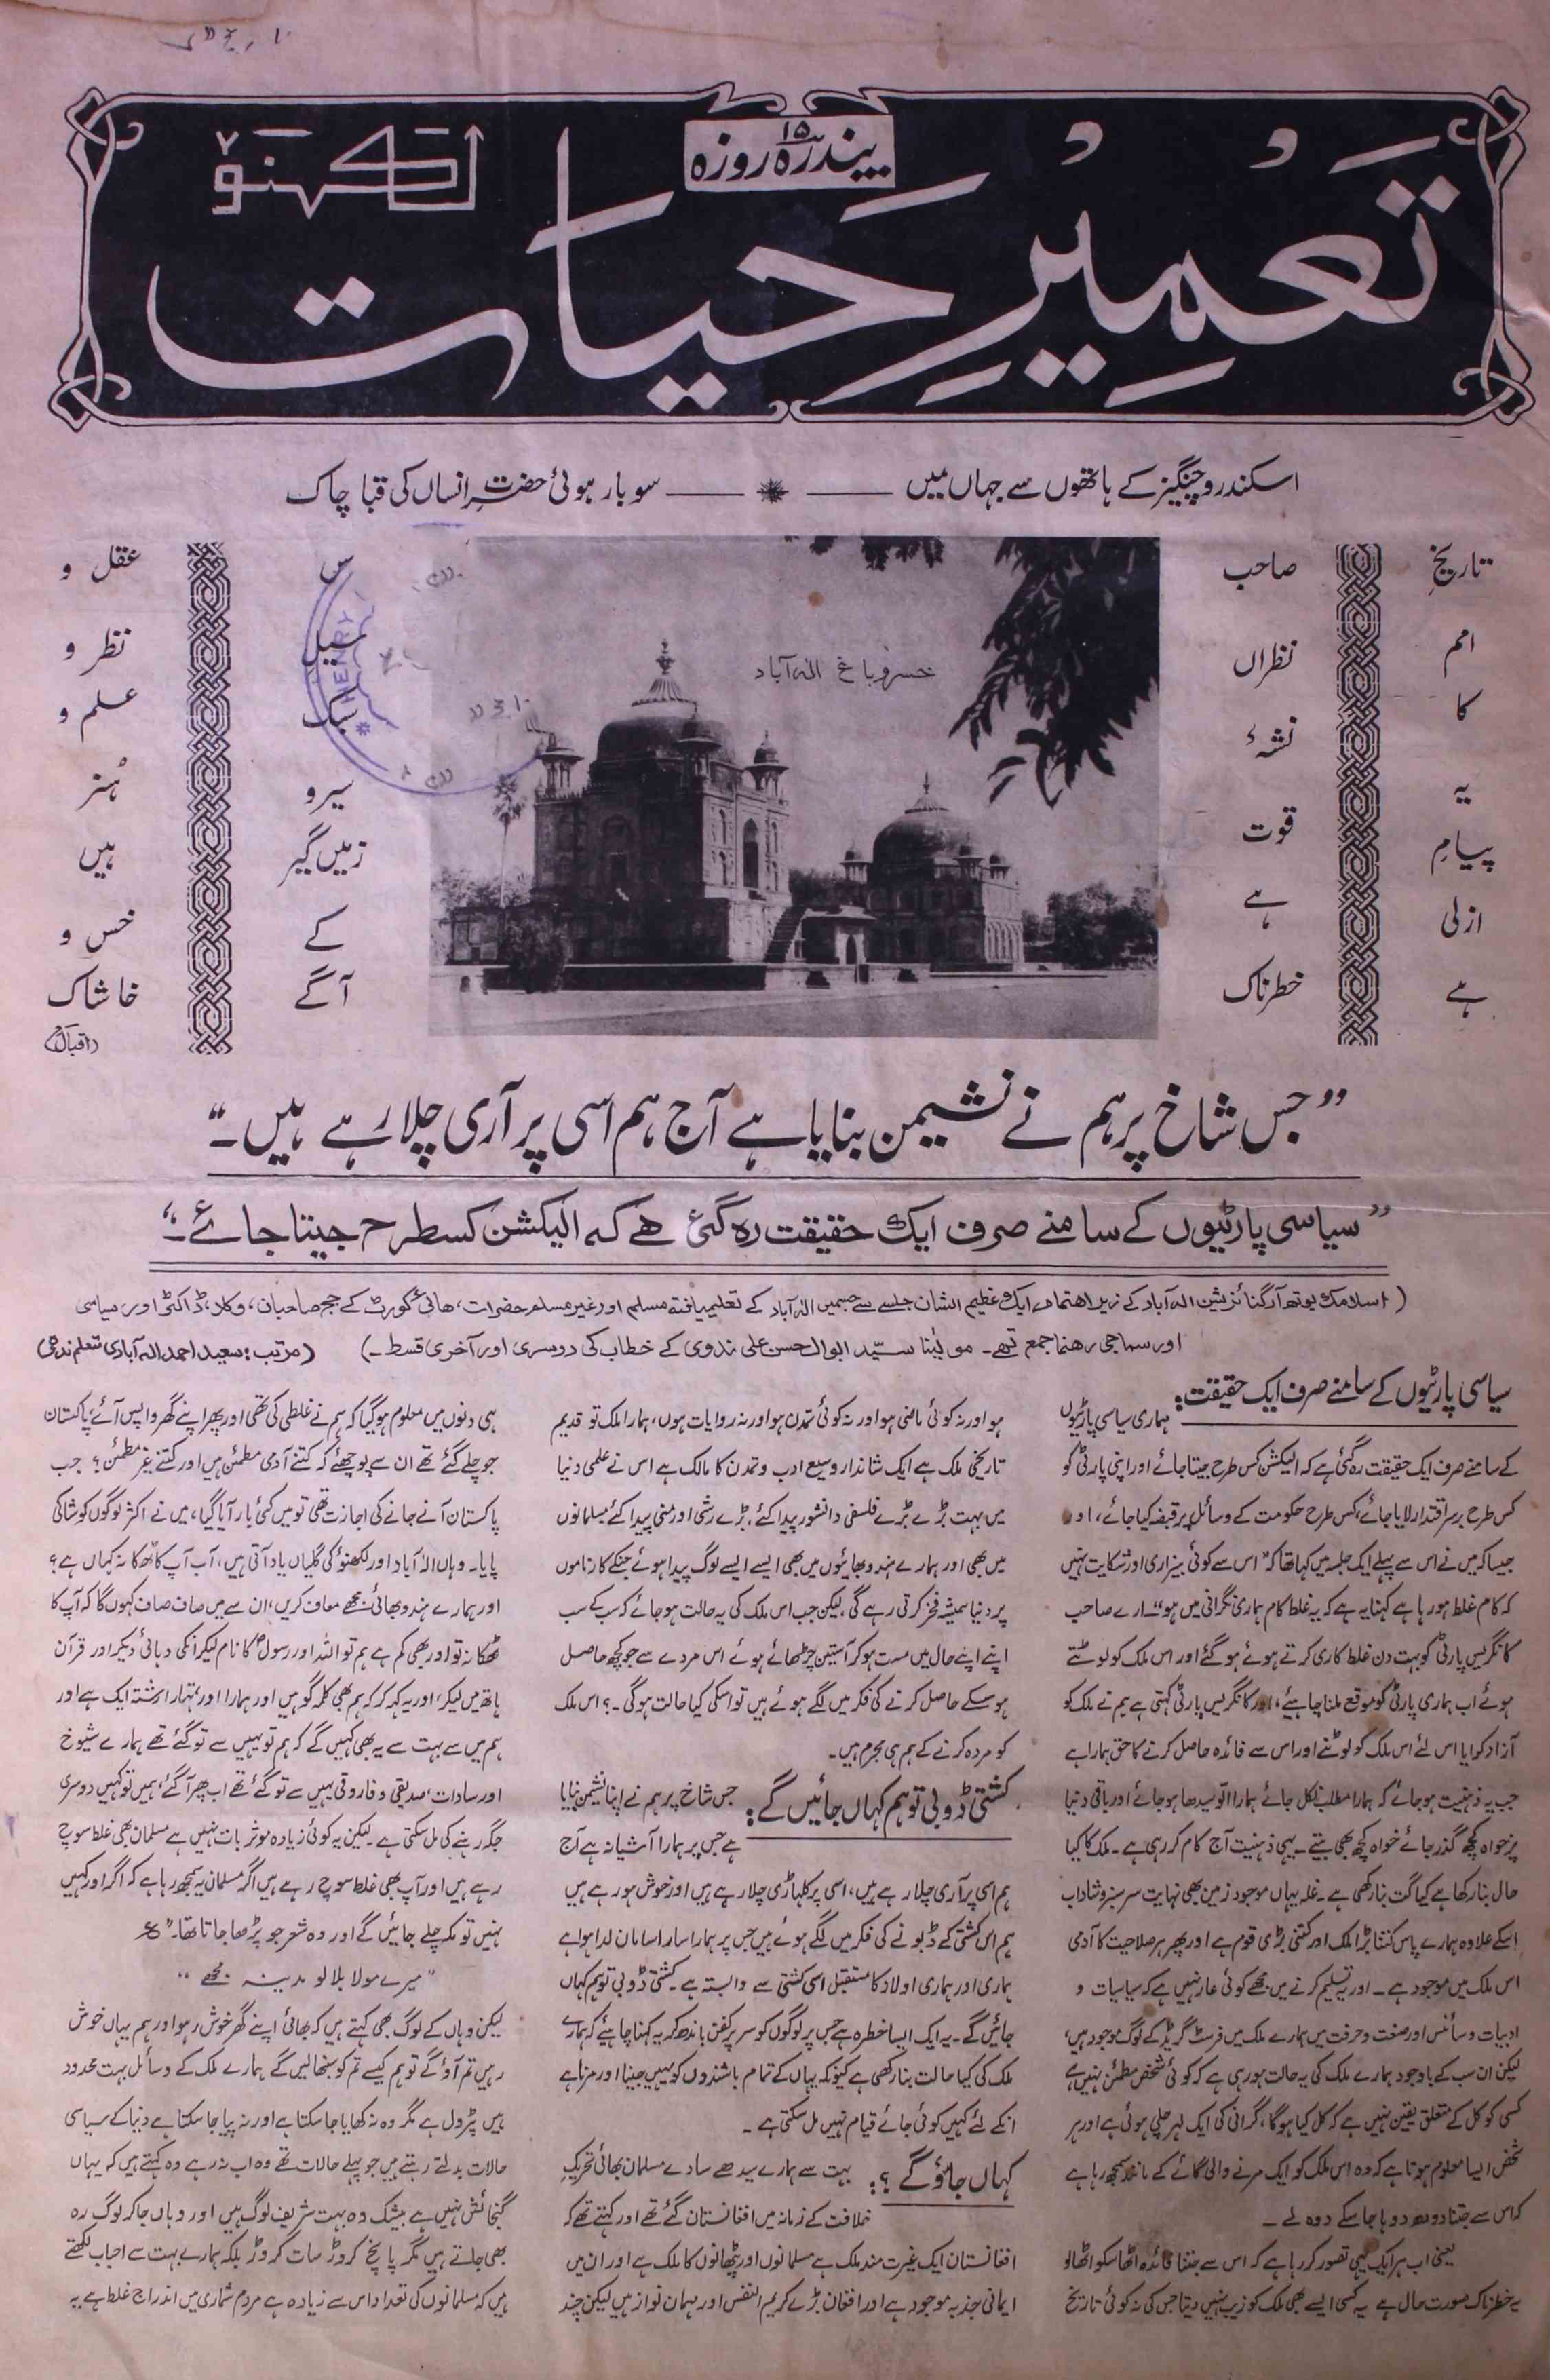 پندرہ ۱۵ روزہ
تعمیرِ حیات
لکھنؤ
اسکندر و چنگیز کے ہاتھوں سے جہاں میں
سو بار ہوئی حضرتِ انساں کی قبا چاک
تاریخِ
امم
کا
یہ
پیامِ
ازلی
ہے
صاحب
نظراں
نشۂ
قوت
ہے
خطرناک
خسرو باغ الہ آباد
سیل
سبک
سیر و
زمیں گیر
کے
آگے
عقل و
نظر و
علم و
ہنر
ہیں
خس و
خاشاک
(اقبالؒ)
”جس شاخ پر ہم نے نشیمن بنایا ہے آج ہم اسی پر آری چلا رہے ہیں۔“
”سیاسی پارٹیوں کے سامنے صرف ایک حقیقت رہ گئی ہے کہ الیکشن کسطرح جیتا جائے۔“
(اسلامک یوتھ آرگنائزیشن الہ آباد کے زیر اہتمام ایک عظیم الشان جلسے سے جسمیں الہ آباد کے تعلیمیافتہ مسلم اور غیر مسلم حضرات، ہائی کورٹ کے جج صاحبان، وکلاء، ڈاکٹر اور سیاسی
اور سماجی رہنما جمع تھے۔ مولینا سید ابوالحسن علی ندوی کے خطاب کی دوسری اور آخری قسط۔) (مرتب: سعید احمد الہ آبادی متعلم ندوہ)
سیاسی پارٹیوں کے سامنے صرف ایک حقیقت: ہماری سیاسی پارٹیوں
کے سامنے صرف ایک حقیقت رہ گئی ہے کہ الیکشن کس طرح جیتا جائے اور اپنی پارٹی کو
کس طرح برسر اقتدار لایا جائے، کس طرح حکومت کے وسائل پر قبضہ کیا جائے، اور
جیسا کہ میں نے اس سے پہلے ایک جلسہ میں کہا تھا کہ ”اس سے کوئی بیزاری اور شکایت نہیں
کہ کام غلط ہو رہا ہے کہنا یہ ہے کہ یہ غلط کام ہماری نگرانی میں ہو“ ارے صاحب
کانگریس پارٹی کو بہت دن غلط کاری کرتے ہوئے ہو گئے اور اس ملک کو لوٹتے
ہوئے اب ہماری پارٹی کو موقع ملنا چاہئیے، اور کانگریس پارٹی کہتی ہے ہم نے ملک کو
آزاد کرایا اس لئے اس ملک کو لوٹنے اور اس سے فائدہ حاصل کرنے کا حق ہمارا ہے
جب یہ ذہنیت ہو جائے کہ ہمارا مطلب نکل جائے ہمارا الّو سیدھا ہو جائے اور باقی دنیا
پر خواہ کچھ گذر جائے خواہ کچھ بھی بیتے۔ یہی ذہنیت آج کام کر رہی ہے۔ ملک کا کیا
حال بنا رکھا ہے کیا گت بنا رکھی ہے۔ غلہ یہاں موجود زمین بھی نہایت سرسبز و شاداب
اسکے علاوہ ہمارے پاس کتنا بڑا ملک اور کتنی بڑی قوم ہے اور پھر ہر صلاحیت کا آدمی
اس ملک میں موجود ہے۔ اور یہ تسلیم کرنے میں مجھے کوئی عار نہیں ہے کہ سیاسیات و
ادبیات و سائنس اور صنعت و حرفت میں ہمارے ملک میں فرسٹ گریڈ کے لوگ موجود ہیں،
لیکن ان سب کے باوجود ہمارے ملک کی یہ حالت ہو رہی ہے کہ کوئی شخص مطمئن نہیں ہے
کسی کو کل کے متعلق یقین نہیں ہے کہ کل کیا ہوگا، گرانی کی ایک لہر چلی ہوئی ہے اور ہر
شخص ایسا معلوم ہوتا ہے کہ وہ اس ملک کو ایک مرنے والی گائے کے مانند سمجھ رہا ہے
کہ اس سے جتنا دودھ دوہا جا سکے دوہ لے۔
یعنی اب ہر ایک یہی تصور کر رہا ہے کہ اس سے جتنا فائدہ اٹھا سکو اٹھا لو
یہ خطرناک صورت حال ہے یہ کسی ایسے بھی ملک کو زیب نہیں دیتا جس کی نہ کوئی تاریخ
ہو اور نہ کوئی ماضی ہو اور نہ کوئی تمدن ہو اور نہ روایات ہوں، ہمارا ملک تو قدیم
تاریخی ملک ہے ایک شاندار وسیع ادب و تمدن کا مالک ہے اس نے علمی دنیا
میں بہت بڑے بڑے فلسفی دانشور پیدا کئے، بڑے رشی اور منی پیدا کئے مسلمانوں
میں بھی اور ہمارے ہندو بھائیوں میں بھی ایسے ایسے لوگ پیدا ہوئے جنکے کارناموں
پر دنیا ہمیشہ فخر کرتی رہے گی، لیکن جب اس ملک کی یہ حالت ہو جائے کہ سب کے سب
اپنے اپنے حال میں مست ہو کر آستین چڑھائے ہوئے اس مردے سے جو کچھ حاصل
ہو سکے حاصل کرنے کی فکر میں لگے ہوئے ہیں تو اسکی کیا حالت ہوگی۔؟ اس ملک
کو مردہ کرنے کے ہم ہی مجرم ہیں۔
کشتی ڈوبی تو ہم کہاں جائیں گے: جس شاخ پر ہم نے اپنا نشیمن بنایا
ہے جس پر ہمارا آشیانہ ہے آج
ہم اسی پر آری چلا رہے ہیں، اسی پر کلہاڑی چلا رہے ہیں اور خوش ہو رہے ہیں
ہم اس کشتی کے ڈبونے کی فکر میں لگے ہوئے ہیں جس پر ہمارا سارا سامان لدا ہوا ہے
ہماری اور ہماری اولاد کا مستقبل اسی کشتی سے وابستہ ہے۔ کشتی ڈوبی تو ہم کہاں
جائیں گے۔ یہ ایک ایسا خطرہ ہے جس پر لوگوں کو سر پر کفن باندھ کر یہ کہنا چاہئیے کہ ہمارے
ملک کی کیا حالت بنا رکھی ہے کیونکہ یہاں کے تمام باشندوں کو یہیں جینا اور مرنا ہے
انکے لئے کہیں کوئی جائے قیام نہیں مل سکتی ہے۔
کہاں جاؤ گے؟: بہت سے ہمارے سیدھے سادے مسلمان بھائی تحریک
خلافت کے زمانہ میں افغانستان گئے تھے اور کہتے تھے کہ
افغانستان ایک غیرت مند ملک ہے مسلمانوں اور پٹھانوں کا ملک ہے اور ان میں
ایمانی جذبہ موجود ہے اور افغان بڑے کریم النفس اور مہمان نواز ہیں لیکن چند
ہی دنوں میں معلوم ہو گیا کہ ہم نے غلطی کی تھی اور پھر اپنے گھر واپس آئے، پاکستان
جو چلے گئے تھے ان سے پوچھئے کہ کتنے آدمی مطمئن ہیں اور کتنے غیر مطمئن؟ جب
پاکستان آنے جانے کی اجازت تھی تو میں کئی بار آیا گیا، میں نے اکثر لوگوں کو شاکی
پایا۔ وہاں الہ آباد اور لکھنؤ کی گلیاں یاد آتی ہیں، اب آپ کا ٹھکانہ کہاں ہے؟
اور ہمارے ہندو بھائی مجھے معاف کریں، ان سے میں صاف صاف کہوں گا کہ آپ کا
ٹھکانہ تو اور بھی کم ہے ہم تو اللہ اور رسولؐ کا نام لیکر انکی دہائی دیکر اور قرآن
ہاتھ میں لیکر، اور یہ کہہ کر کہ ہم بھی کلمہ گو ہیں اور ہمارا اور تمہارا رشتہ ایک ہے اور
ہم میں سے بہت سے یہ بھی کہیں گے کہ ہم تو یہیں سے تو گئے تھے ہمارے شیوخ
اور سادات، صدیقی و فاروقی یہیں سے تو گئے تھے اب پھر آ گئے، ہمیں تو کہیں دوسری
جگہ رہنے کی مل سکتی ہے۔ لیکن یہ کوئی زیادہ موثر بات نہیں ہے مسلمان بھی غلط سوچ
رہے ہیں اور آپ بھی غلط سوچ رہے ہیں اگر مسلمان یہ سمجھ رہا ہے کہ اگر اور کہیں
نہیں تو مکہ چلے جائیں گے اور وہ شعر جو پڑھا جاتا تھا۔“ ؏
”میرے مولا بلا لو مدینہ مجھے“
لیکن وہاں کے لوگ بھی کہتے ہیں کہ بھائی اپنے گھر خوش رہو اور ہم یہاں خوش
رہیں تم آؤ گے تو ہم کیسے تم کو سنبھالیں گے ہمارے ملک کے وسائل بہت محدود
ہیں پٹرول ہے مگر وہ نہ کھایا جا سکتا ہے اور نہ پیا جا سکتا ہے دنیا کے سیاسی
حالات بدلتے رہتے ہیں جو پہلے حالات تھے وہ اب نہ رہے وہ کہتے ہیں کہ یہاں
گنجائش نہیں ہے بیشک وہ بہت شریف لوگ ہیں اور وہاں جا کر لوگ رہ
بھی جاتے ہیں مگر پانچ کروڑ سات کروڑ بلکہ ہمارے بہت سے احباب لکھتے
ہیں کہ مسلمانوں کی تعداد اس سے زیادہ ہے مردم شماری میں اندراج غلط ہے یہ